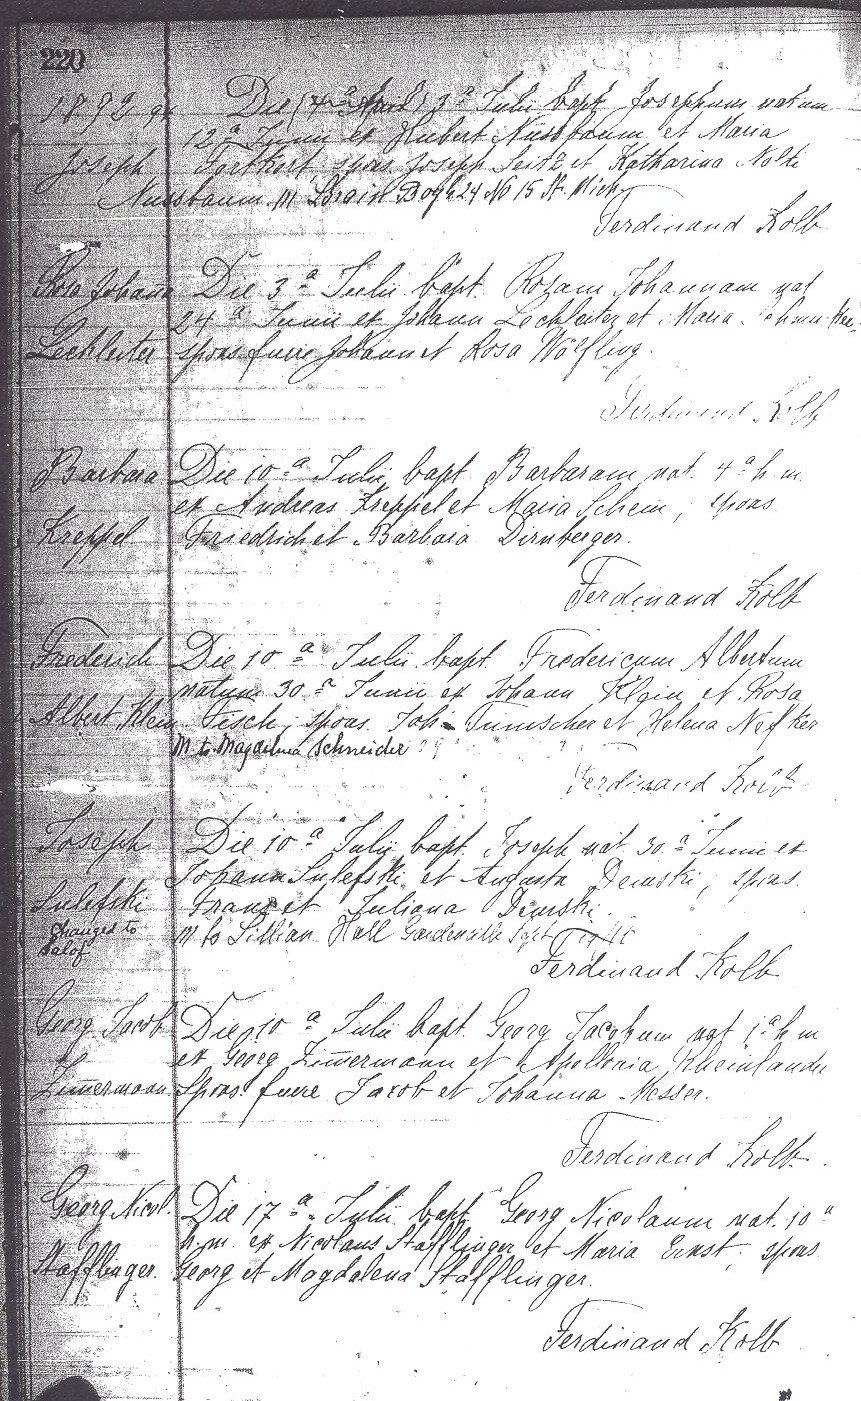 220
1892
Die (4ª) 3ª Julii bapt. Josephum natum
12ª Junii ex Hubert Nussbaum et Maria
Joseph
spons. Joseph Seitz et Katharina Nolte
Nussbaum
Ferdinand Kolb
Rosa Johana
Die 3ª Julii bapt. Rosam Johannam nat
24ª Junii ex Johann Lechleiter et Maria
Lechleiter
spons fuere Johann et Rosa Wölfling.
Ferdinand Kolb
Barbara
Die 10ª Julii bapt. Barbaram nat. 4ª h. m.
ex Andreas Kreppel et Maria Schein, spons
Kreppel
Friedrich et Barbara Dirnberger.
Ferdinand Kolb
Frederich
Die 10ª Julii bapt. Fredericum Albertum
natum 30ª Junii ex Johann Klein et Rosa
Albert Klein
Fisch, spons. Joh. et Helena
M to Magdalena Schneider
Ferdinand Kolb
Joseph
Die 10ª Julii bapt. Joseph nat. 30ª Junii ex
Johann Sulefski et Augusta Demski, spons.
Sulefski
Franz et Juliana Demski.
changed to
M to Lillian Hall Gardenville Sept
Salof
Ferdinand Kolb
Georg Jacob
Die 10ª Julii bapt. Georg Jacobum nat 1ª h m
ex Georg Zim̄ermann et Apollonia Rheinlander
Zim̄ermann
Spons. fuere Jacob et Johanna Messer.
Ferdinand Kolb.
Georg Nicol.
Die 17ª Julii bapt. Georg Nicolaum nat. 10ª
h. m. ex Nicolaus Stafflinger et Maria Ernst, spons.
Stafflinger.
Georg et Magdalena Stafflinger.
Ferdinand Kolb